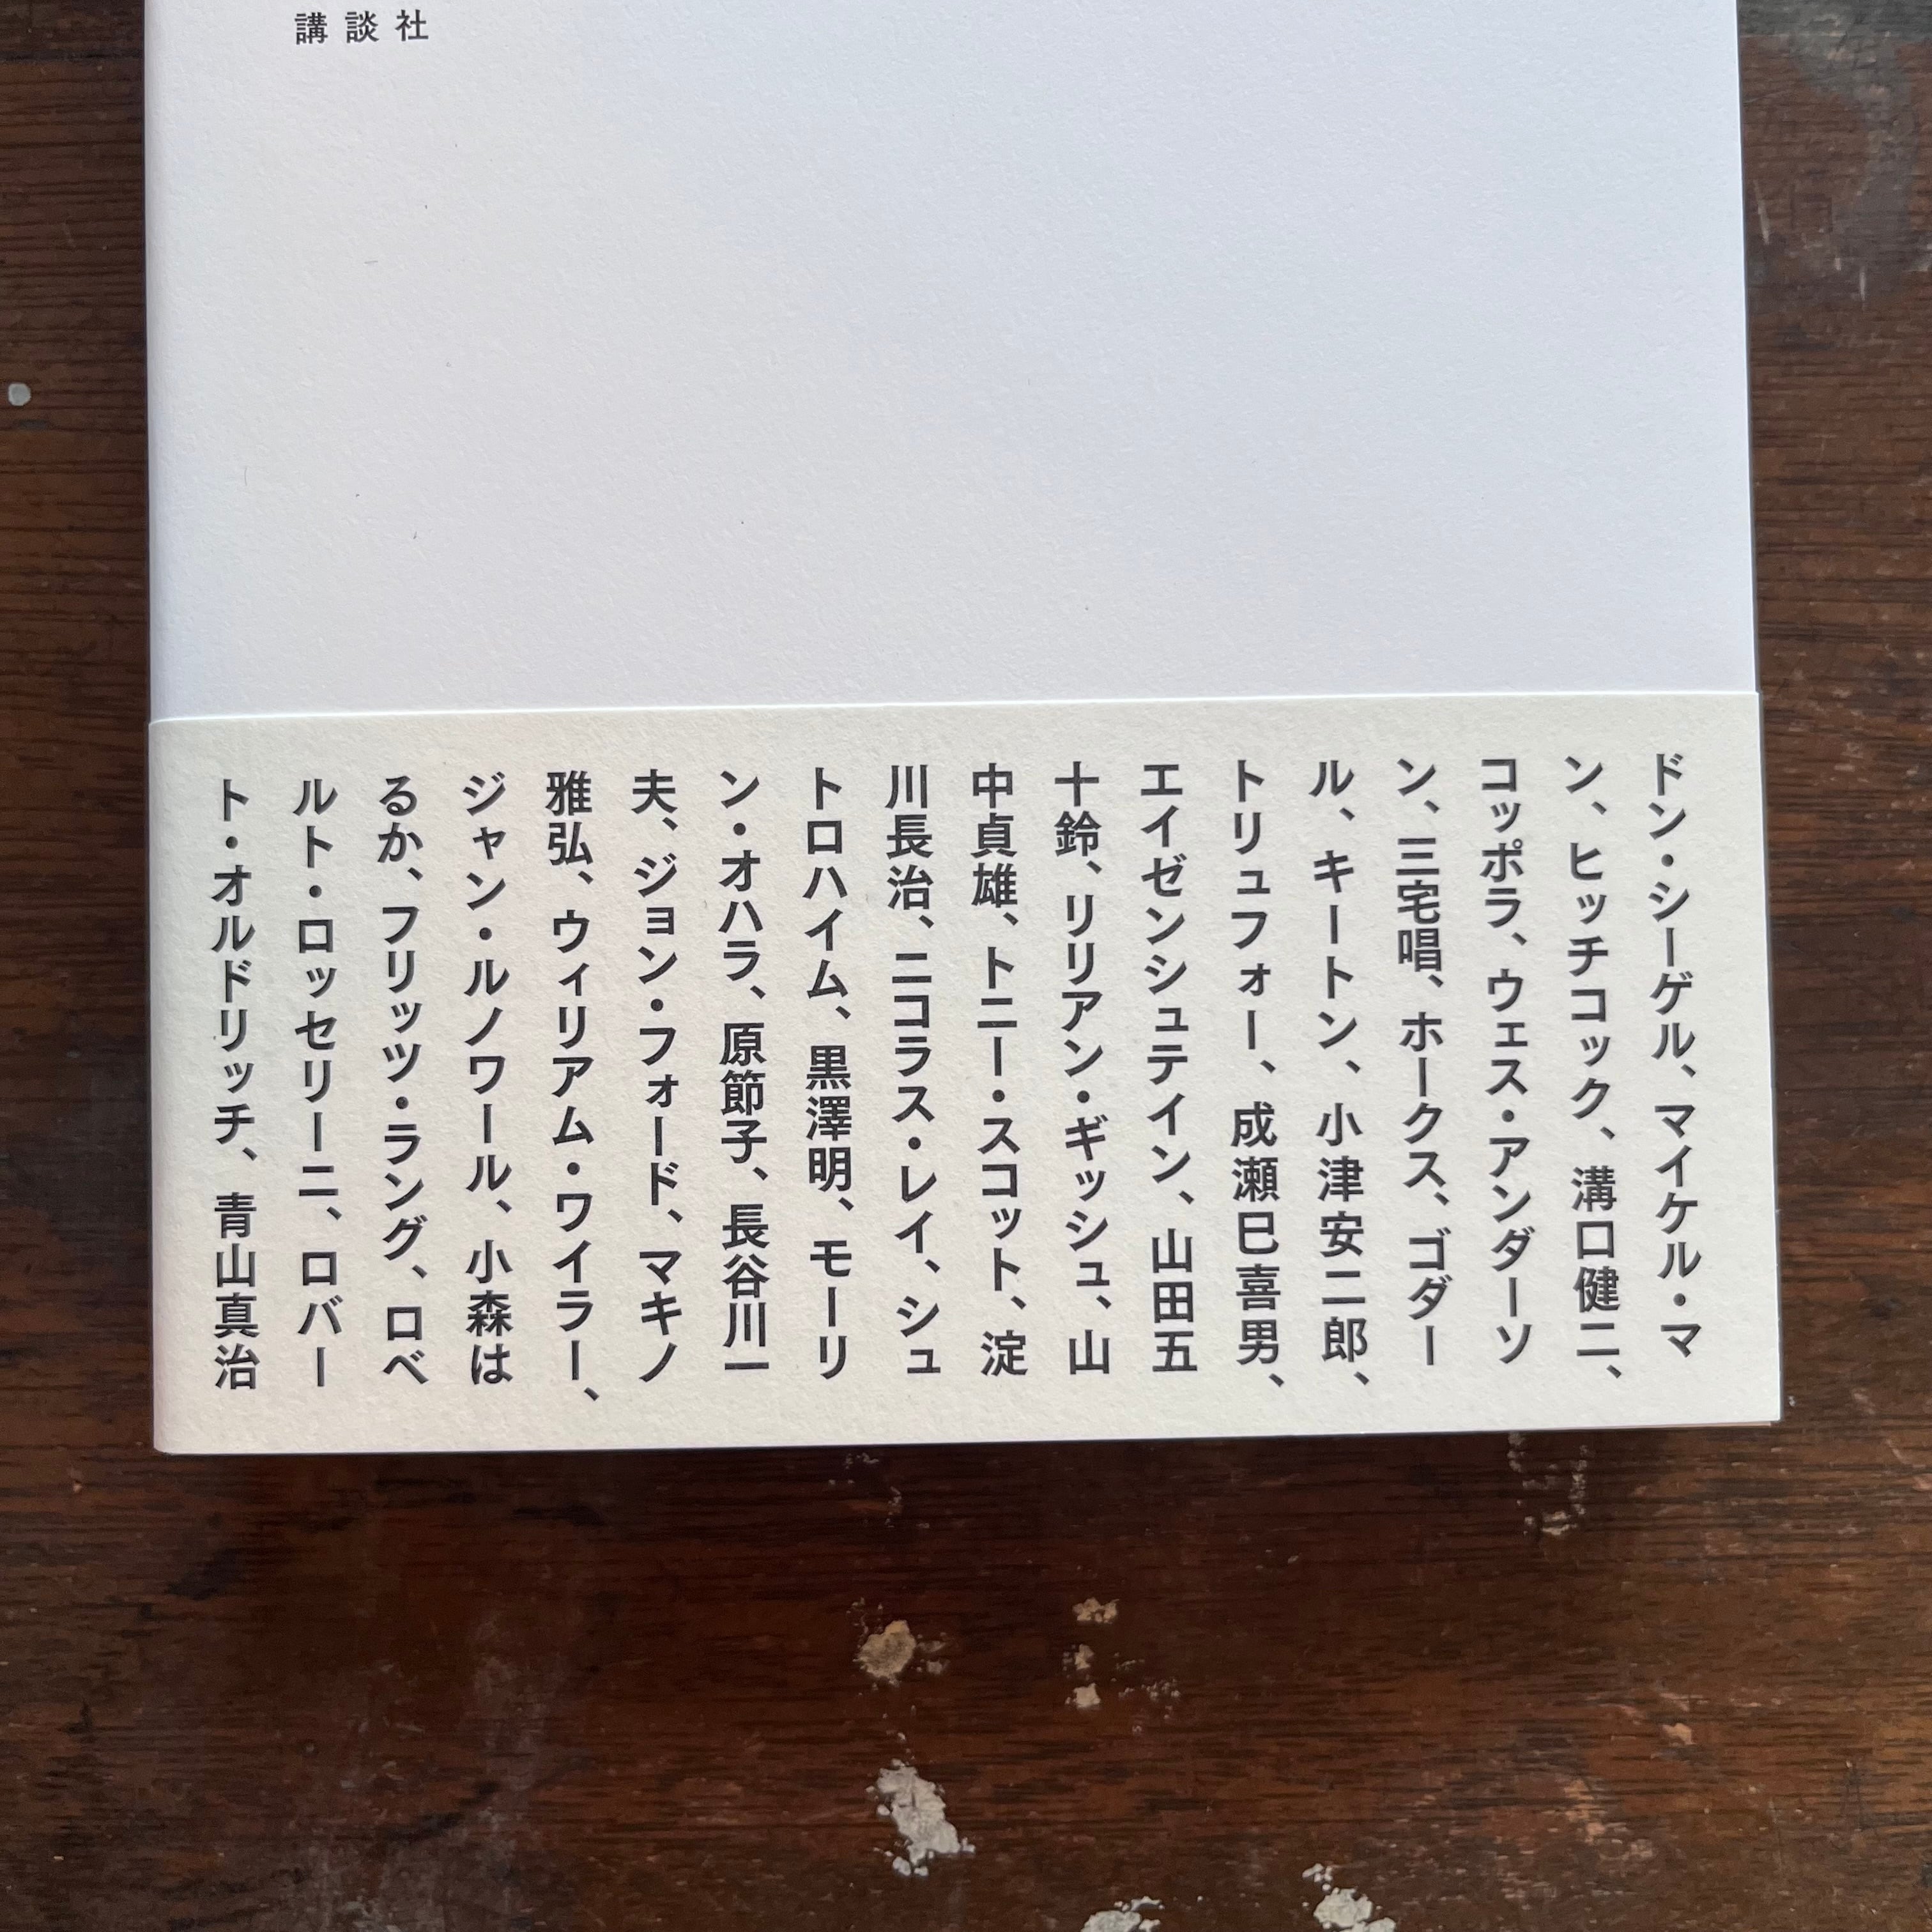 講談社
ドン・シーゲル、マイケル・マ
ン、ヒッチコック、溝口健二、
コッポラ、ウェス・アンダーソ
ン、三宅唱、ホークス、ゴダー
ル、キートン、小津安二郎、
トリュフォー、成瀬巳喜男、
エイゼンシュテイン、山田五
十鈴、リリアン・ギッシュ、山
中貞雄、トニー・スコット、淀
川長治、ニコラス・レイ、シュ
トロハイム、黒澤明、モーリ
ン・オハラ、原節子、長谷川一
夫、ジョン・フォード、マキノ
雅弘、ウィリアム・ワイラー、
ジャン・ルノワール、小森は
るか、フリッツ・ラング、ロベ
ルト・ロッセリーニ、ロバー
ト・オルドリッチ、青山真治